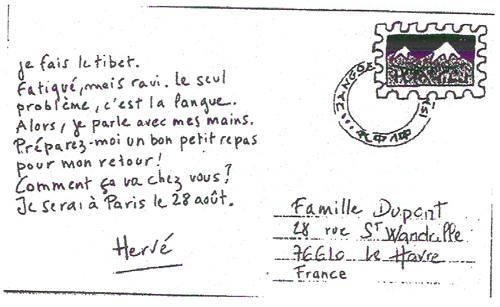 je fais le tibet.
Fatigué, mais ravi. le seul
problème, c'est la langue.
Alors, je parle avec mes mains.
Préparez-moi un bon petit repas
pour mon retour!
Comment ça va chez vous?
Je serai à Paris le 28 août.
Hervé
Famille Dupont
28 rue St Wandrille
76610 le Havre
France